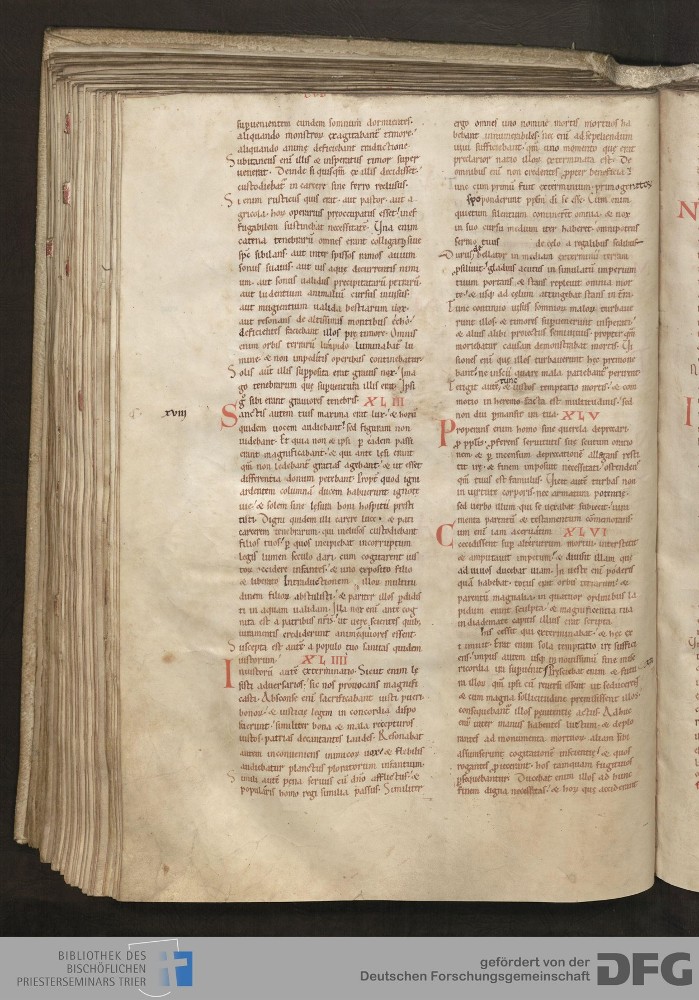 supuenientem eundem somnium dormientes.
aliquando monstroꝝ exagitabant̄ timore.
aliquando anime deficiebant traductione
Subitaneus eni illis & insperatus timor super
uenerat. Deinde si quisquā ex illis decidisset.
custodiebat̄ in carcere sine ferro reclusus.
Si enim rusticus quis erat. aut pastor. aut a
gricola. hoꝝ operarius preoccupatus esset. inef
fugabilem sustinebat necessitatē. Una enim
catena tenebrarū omnes erant colligati siue
spc sibilans. aut inter spissos ramos auium
sonus suauis. aut uis aque decurrentis nimi
um. aut sonus ualidus precipitatarū petrarū.
aut ludentium animaliū cursus inuisus.
aut mugientium ualida bestiarum uox.
aut resonans de altissimis montibus echo.
deficientes faciebant illos pre timore. Omnis
enim orbis terrarū limpido luminabat̄ lu
mine. & non impeditis operibus continebatur.
Solis aut illis supposita erat grauis nox. Ima
go tenebrarum que supuentura illis erat. Ipsi
g sibi erant grauiores tenebris. XLIII
xviii
Sanctis autem tuis maxima erat lux. & horū
quidem uocem audiebant. sed figuram non
uidebant. Et quia non & ipsi p eadem passi
erant magnificabant. & qui ante lesi erant
qm non ledebant̄ gratias agebant. & ut esset
differentia donum petebant. Propt quod igni
ardentem columnā ducem habuerunt ignote
uie. & solem sine lesura boni hospitii presti
tisti. Digni quidem illi carere luce. & pati
carcerem tenebrarum. qui inclusos custodiebant
filios tuos. p quos incipiebat incorruptum
legis lumen seculo dari. cum cogitarent ius
toꝝ occidere infantes. & uno exposito filio
& liberato. In traductionem illoꝝ multitu
dinem filioꝝ abstulisti. & pariter illos pdidis
ti in aqua ualidam. Illa nox eni ante cog
nita est a patribus nris. ut uere scientes quib;
iuramentis crediderunt animequiores essent.
Suscepta est aute a populo tuo sanitas quidem
iustorum. XLIIII
Iniustorū aute exterminatio. Sicut enim le
sisti aduersarios. sic nos prouocans magnifi
casti. Absconse eni sacrificabant iusti pueri
bonoꝝ. & iusticie legem in concordia dispo
suerunt. similiter bona & mala recepturos
iustos. patrias decantantes laudes. Resonabat
autem inconueniens inimicoꝝ uox. & flebilis
audiebatur planctus ploratorum infantium.
Simili aute pena seruus cū dno afflictus. &
popularis homo regi similia passus. Similiter
ergo omnes uno nomine mortis mortuos ha
bebant innumerabiles. nec eni ad sepeliendum
uiui sufficiebant. qm uno momento que erat
preclarior natio illoꝝ exterminata est. De
omnibus eni non credentes propter beneficia.
Tunc cum primū fuit exterminium primogenitoꝝ
spoponderunt ppsm di se esse. Cum enim
quietum silentium contineret omnia. & nox
in suo cursu medium iter haberet. omnipotens
sermo tuus de celo a regalibus sedibus.
Durus debellator in mediam exterminii terram
psiliuit. gladius acutus insimulatū imperium
tuum portans. & stans repleuit omnia mor
te. & usq; ad celum attingebat stans in terra.
Tunc continuo uisus somnioꝝ maloꝝ turbaue
runt illos. & timores supuenerunt insperati.
& alius alibi proiectus semiuiuus. propter qm
moriebatur causam demonstrabat mortis. Ui
siones eni que illos turbauerunt hec premone
bant. ne inscii quare mala patiebant̄ perirent.
Tetigit aute tunc & iustos temptatio mortis. & com
motio in heremo facta est multitudinis. sed
non diu pmansit ira tua. XLV
Properans enim homo sine querela deprecari
p pplis. pferens seruitutis sue scutum oratio
nem & p incensum deprecatione allegans resti
tit ire. & finem imposuit necessitati. ostendens
qm tuus est famulus. Uicit aute turbas non
in uirtute corporis. nec armature potentie.
sed uerbo illum qui se uexabat subiecit. iura
menta parentū & testamentum commemorans.
Cum eni iam aceruatim XLVI
cecidissent sup alterutrum mortui. interstitit
& amputauit impetum. & diuisit illam que
ad uiuos ducebat uiam. In ueste eni poderis
quā habebat. totus erat orbis terrarum. &
parentū magnalia. in quatuor ordinibus la
pidum erant sculpta. & magnificentia tua
in diademate capitis illius erat scripta.
His cessit qui exterminabat. & hec ex
timuit. Erat enim sola temptatio ire suffici
ens. impiis autem usq; in nouissimū sine mise
ricordia ira supuenit. Presciebat enim & futura
illoꝝ. qm ipsi cū reuersi essent ut educeret
& cum magna sollicitudine premisissent illos.
consequebant̄ illos penitentie actus. Adhuc
eni inter manus habentes luctum. & deplo
rantes ad monumenta mortuoꝝ. aliam sibi
assumserunt cogitatione inscientie. & quos
rogantes piecerant. hos tamquam fugitiuos
psequebantur. Ducebat enim illos ad hunc
finem digna necessitas. & hoꝝ que acciderant
BIBLIOTHEK DES
BISCHÖFLICHEN
PRIESTERSEMINARS TRIER
gefördert von der
Deutschen Forschungsgemeinschaft
DFG